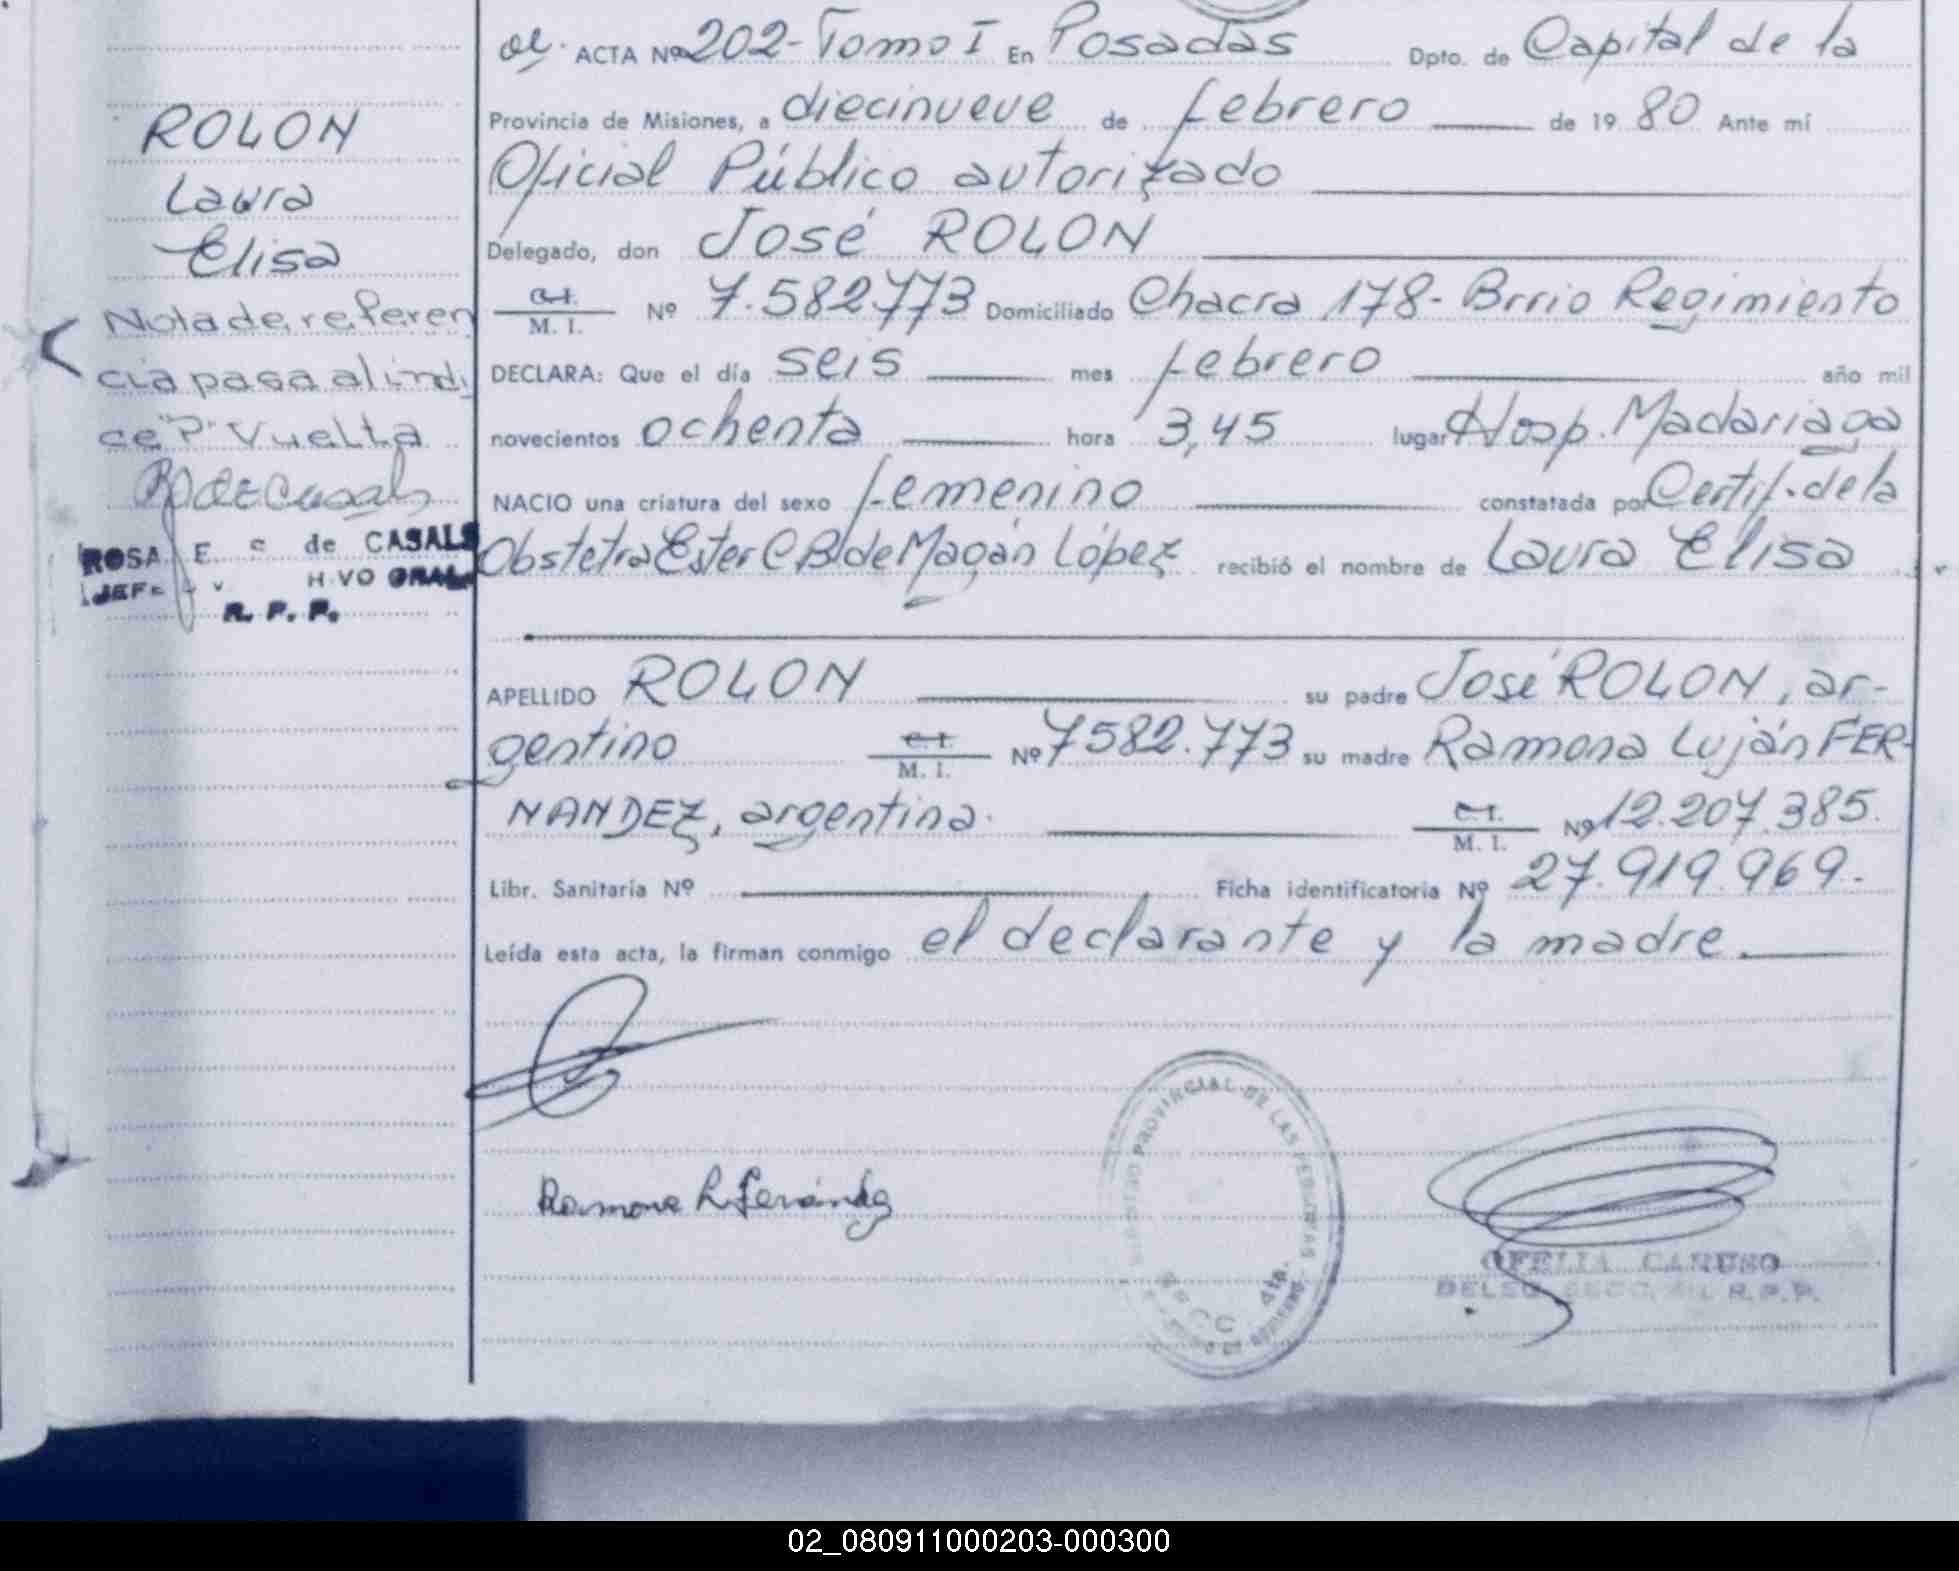 ROLON
Laura
Elisa
Nota de referen
cia pasa al indi
ce "P" Vuelta
R de Casals
ROSA E. C de CASALS
JEF HIVO GRAL
R. P. P.
ACTA Nº 202- Tomo I En Posadas Dpto. de Capital de la
Provincia de Misiones, a diecinueve de febrero de 19 80 Ante mí
Oficial Público autorizado
Delegado, don José ROLON
C.I. / M. I. Nº 7.582.773 Domiciliado Chacra 178- Brrio Regimiento
DECLARA: Que el día seis mes febrero año mil
novecientos ochenta hora 3,45 lugar Hosp. Madariaga
NACIO una criatura del sexo femenino constatada por Certif. de la
Obstetra Ester C B de Magán López recibió el nombre de Laura Elisa
APELLIDO ROLON su padre José ROLON, ar-
gentino C.I. / M. I. Nº 7582.773 su madre Ramona Luján FER-
NANDEZ, argentina. C.I. / M. I. Nº 12.207.385.
Libr. Sanitaria Nº Ficha identificatoria Nº 27.919.969.
Leída esta acta, la firman conmigo el declarante y la madre.
Ramona L Fernández
REGISTRO PROVINCIAL DE LAS PERSONAS
OFELIA CARUSO
DELEG. SECC. R.P.P.
02_080911000203-000300